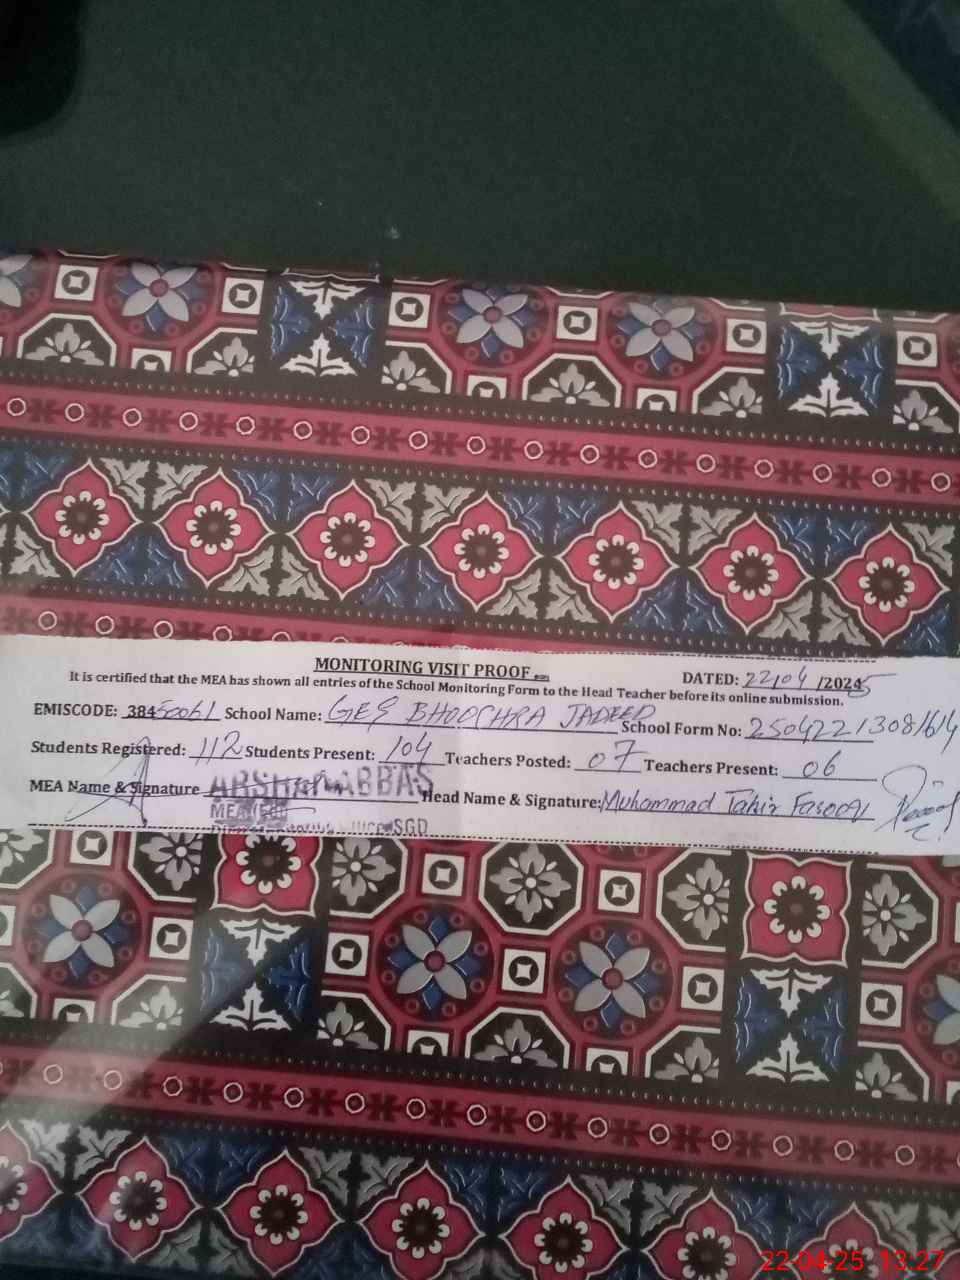 MONITORING VISIT PROOF
DATED: 22/04 /2025
It is certified that the MEA has shown all entries of the School Monitoring Form to the Head Teacher before its online submission.
EMISCODE: 38450061 School Name: GES BHOOCHRA JADEED School Form No: 250422130816/4
Students Registered: 112 Students Present: 104 Teachers Posted: 07 Teachers Present: 06
MEA Name & Signature ARSHAD ABBAS Head Name & Signature: Muhammad Tahir Farooq
MEA
SGD
22-04-25 13:27